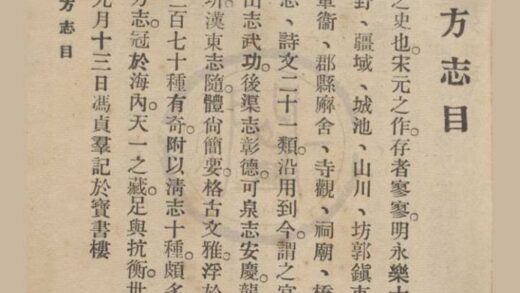 方志目
之史也。宋元之作存者寥寥。明永樂十
野、疆域、城池、山川、坊郭鎮市
軍衞、郡縣廨舍、寺觀、祠廟、橋
志、詩文二十一類。沿用到今。謂之官
山志武功。後渠志彰德。可泉志安慶。龍
圻漢東志隨。體尙簡要。格古文雅。浮於
二百七十種有奇。附以清志十種。頗多
方志冠於海內。天一之藏。足與抗衡。世
九月十三日馮貞羣記於寶書樓
方志目